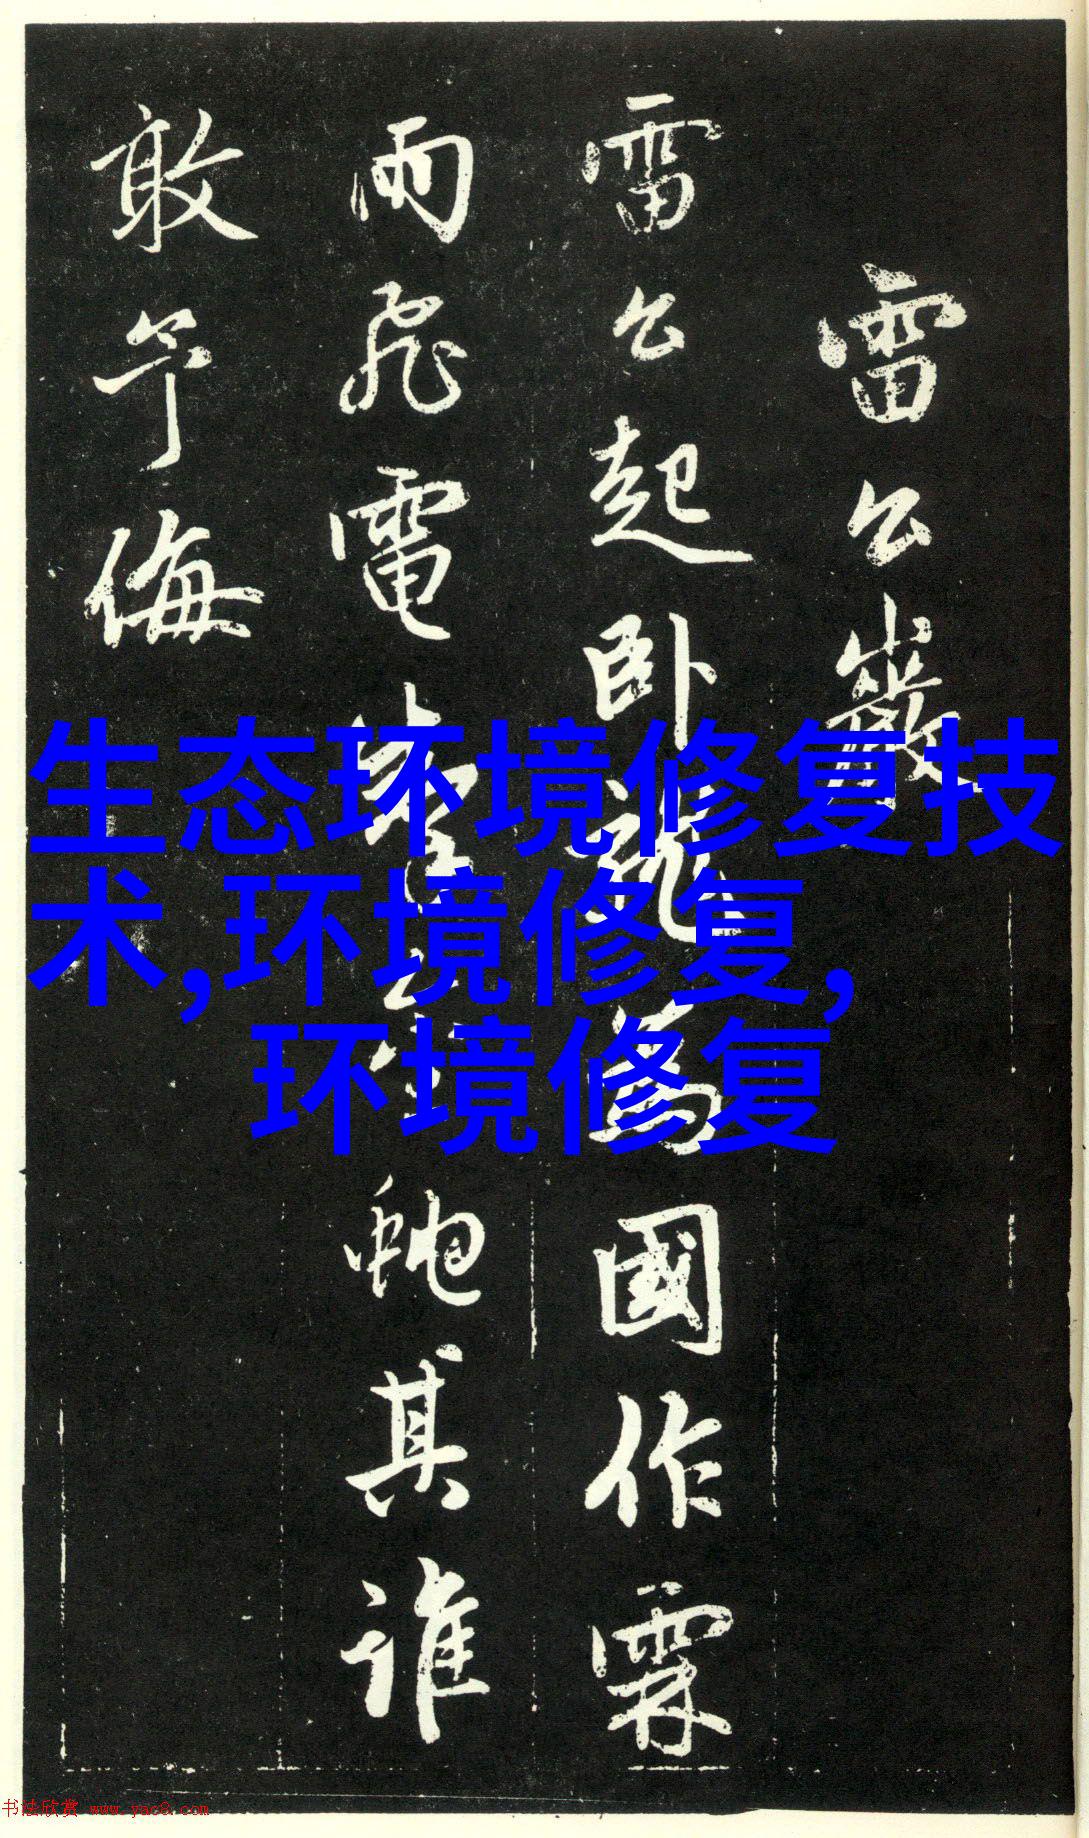 雷公巖
雷公起卧龍為國作霖
雨飛電虵其誰
敢予侮
生态环境修复技
术,环境修复,
环境修复
书法欣赏 www.yac8.com